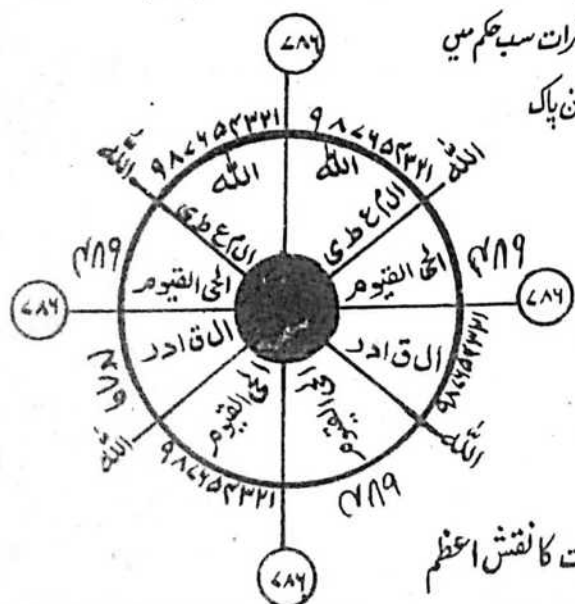 رات سب حکم میں
ن پاک
۷۸۶
۹۸۷۶۵۴۳۲۱
۹۸۷۶۵۴۳۲۱
اللہ
اللہ
اللہ
اللہ
ال م ع ط ی
ال م ع ط ی
الحی القیوم
الحی القیوم
۷۸۶
۷۸۶
ال ق ا د ر
ال ق ا د ر
۹۸۷۶۵۴۳۲۱
الحی القیوم
الحی القیوم
اللہ
اللہ
۹۸۷۶۵۴۳۲۱
ت کا نقش اعظم
۷۸۶